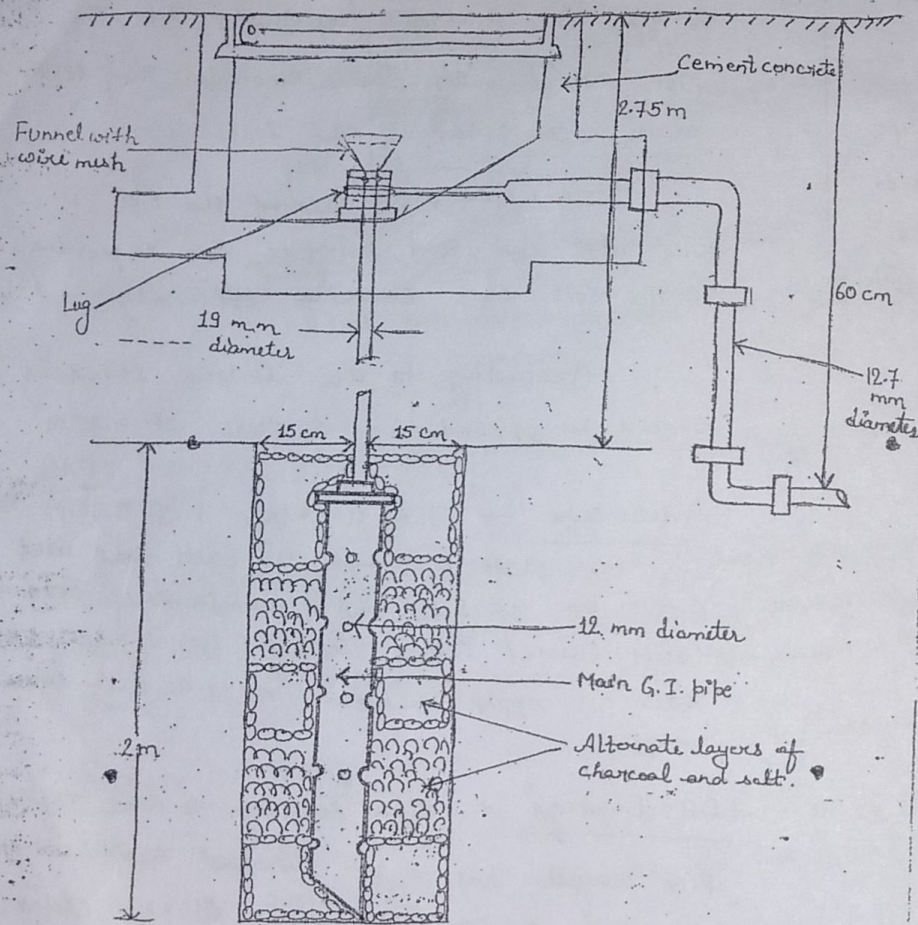 Cement concrete
2.75 m
Funnel with
wire mesh
Lug
60 cm
19 m.m
diameter
12.7
mm
diameter
15 cm
15 cm
12 mm diameter
Main G.I. pipe
2m
Alternate layers of
charcoal and salt.